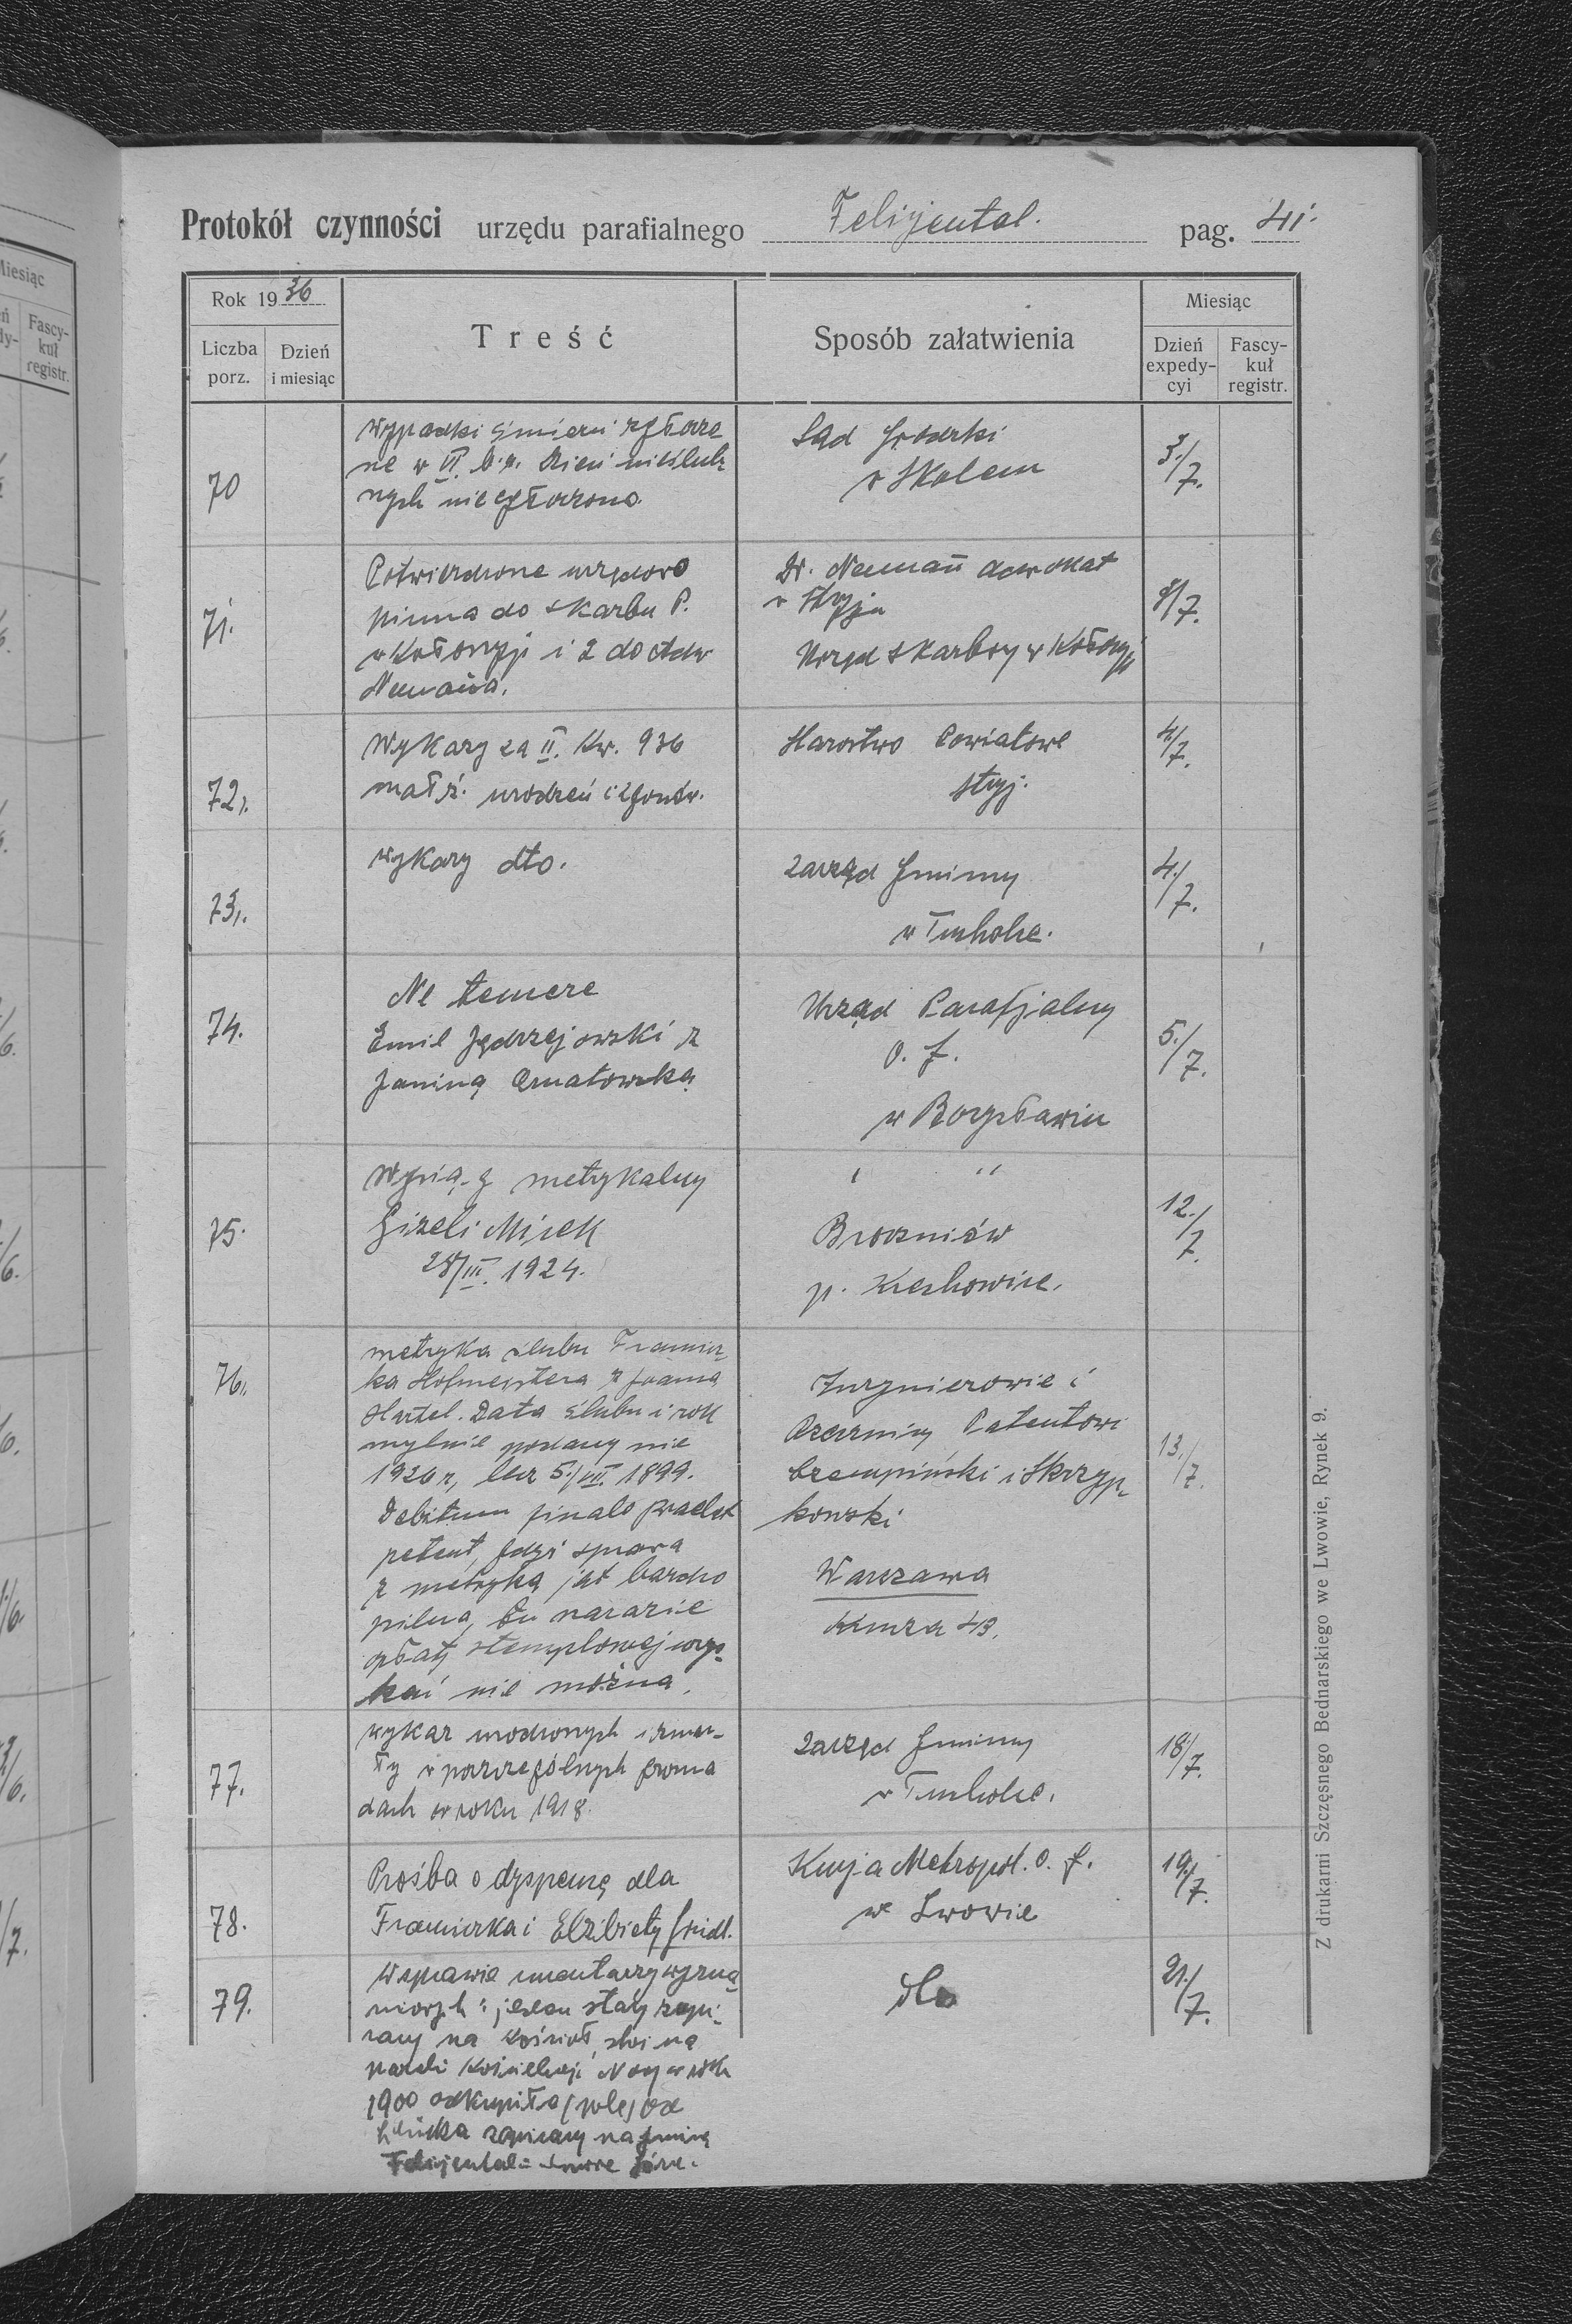 Protokół czynności urzędu parafialnego Felizjental. pag. 41.
Rok 1936
Liczba porz.
Dzień i miesiąc
Treść
Sposób załatwienia
Miesiąc
Dzień expedycyi
Fascykuł registr.
70
Wypadki śmierci zgłoszo
ne w VI b.r. Dzieci nieślub
nych nie zgłoszono.
Sąd Grodzki
w Skolem
3./7.
71.
Potwierdzone urzędowo
pisma do Skarbu P.
i 2 do Adw
Neumaña.
Dr. Neumañ adwokat
w Stryju
Urząd Skarbowy w
8/7.
72.
Wykazy za II. Kw. 936
małż. urodzeń i zgonów.
Starostwo Powiatowe
Stryj.
4/7.
73.
wykazy dto.
Zarząd Gminny
w Tucholce.
4./7.
74.
Ne temere
Emil Jędrzejowski z
Janiną
Urząd Parafjalny
o. ł.
w Borysławiu
5./7.
75.
Wyciąg metrykalny
Gizeli Mizek
28/III. 1924.
" "
Broszniów
p. Krechowice.
12./7.
76.
metryka ślubu Francisz
ka Hofmeistera z Joanną
Hartel. Data ślubu i rok
mylnie podany nie
1926 r, lecz 5./VII. 1899.
Debitum
petent, gdyż sprawa
z metryką jest bardzo
pilna, tu narazie
opłaty stemplowej uzys
kać nie można.
Inżynierowie i
Rzecznicy Patentowi
Czempiński i Skrzyp
kowski
Warszawa
Krucza 43.
13./7.
77.
wykaz urodzonych i zmar-
ły w poszczególnych groma
dach w roku 1918.
Zarząd Gminny
w Tucholce.
18/7.
78.
Prośba o dyspensę dla
Franciszka i Elżbiety
Kurja Metropol. o. ł.
we Lwowie
19./7.
79.
W sprawie cmentarzy wyzna
niowych: jeden stary zapi
sany na kościół, stoi na
parceli kościelnej. Nowy w roku
1900 odkupiła (pole) od
zapisany na gminę
Felizjental
dto
21./7.
Z drukarni Szczęsnego Bednarskiego we Lwowie, Rynek 9.
Miesiąc
Fascykuł registr.